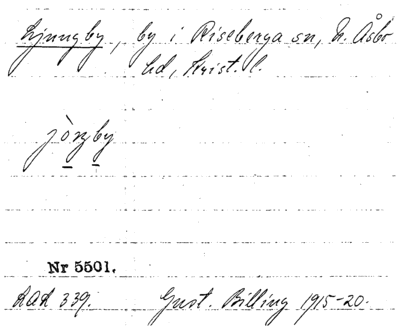 Ljungby, by i Riseberga sn, N. Åsbo
hd, Krist. l.
jòŋby
Nr 5501.
LAL 339. Gust. Billing 1915-20.